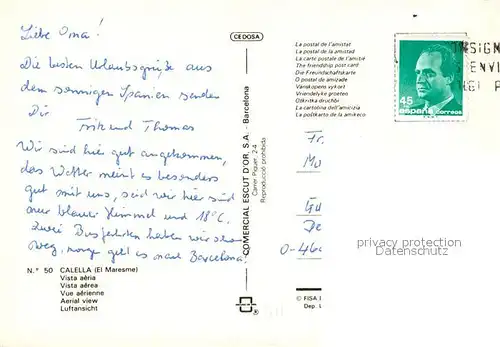 Liebe Oma!
Die besten Urlaubsgrüße aus
dem sonnigen Spanien senden
Dir
Fritz und Thomas
Wir sind hier gut angekommen,
das Wetter meint es besonders
gut mit uns, seid wir hier sind
nur blauer Himmel und 18°C.
Zwei Busfahrten haben wir schon
weg, morgen geht es nach Barcelona.
N.° 50 CALELLA (El Maresme)
Vista aèria
Vista aérea
Vue aérienne
Aerial view
Luftansicht
CEDOSA
COMERCIAL ESCUT D'OR, S.A. - Barcelona
Carrer Piquer, 2-4
Reproducció prohibida
La postal de l'amistat
La postal de la amistad
La carte postale de l'amitié
The friendship post card
Die Freundschaftskarte
O postal de amizade
Vänskapens vykort
Vriendelyke groeten
La cartolina dell'amicizia
La postkarto de la amikeco
45
españa correos
NSIGN
ENVI
Fr.
De
privacy protection
Datenschutz
© FISA I
Dep. L